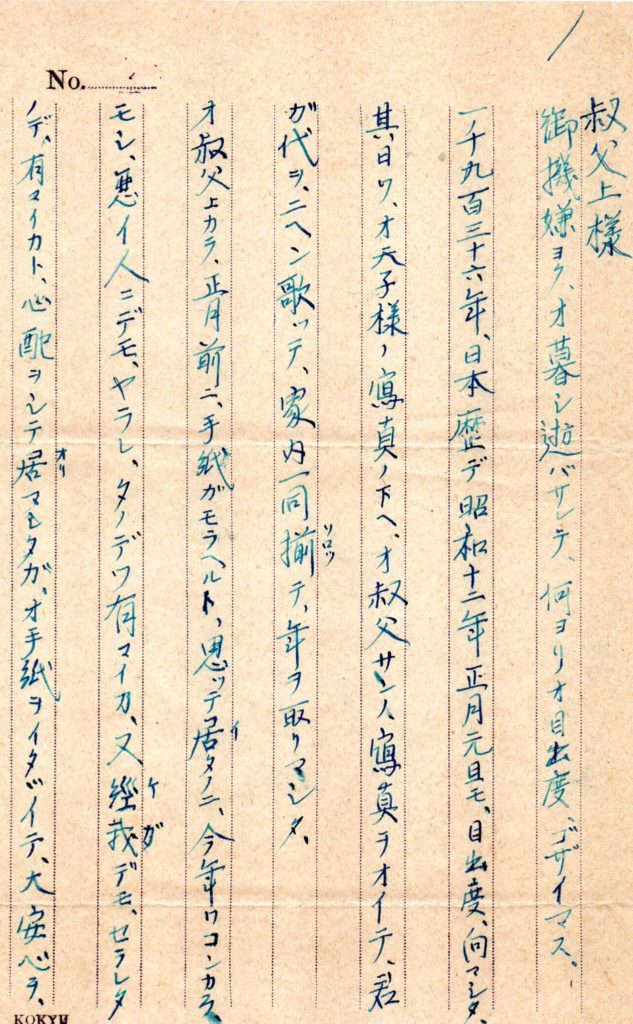 No.
叔父上様
御機嫌ヨク、オ暮シ遊バサレテ、何ヨリオ目出度、ゴザイマス、
一千九百三十六年、日本歴デ昭和十二年正月元旦モ、目出度、向マシタ、
其、日ワ、オ天子様ノ寫真ノ下ヘ、オ叔父サンノ、寫真ヲオイテ、君
ガ代ヲ、ニヘン歌ッテ、家内一同揃ソロツテ、年ヲ取リマシタ、
オ叔父上カラ、正月前ニ、手紙ガモラヘルト、思ッテ居イタノニ、今年ワコンカラ、
モシ、悪イ人ニデモ、ヤラレ、タノデワ有マイカ、又経我ケガデモ、セラレタ
ノデ、有マイカト、心配ヲシテ居オリマシタガ、オ手紙ヲイタヾイテ、大安心ヲ、
KOKYU